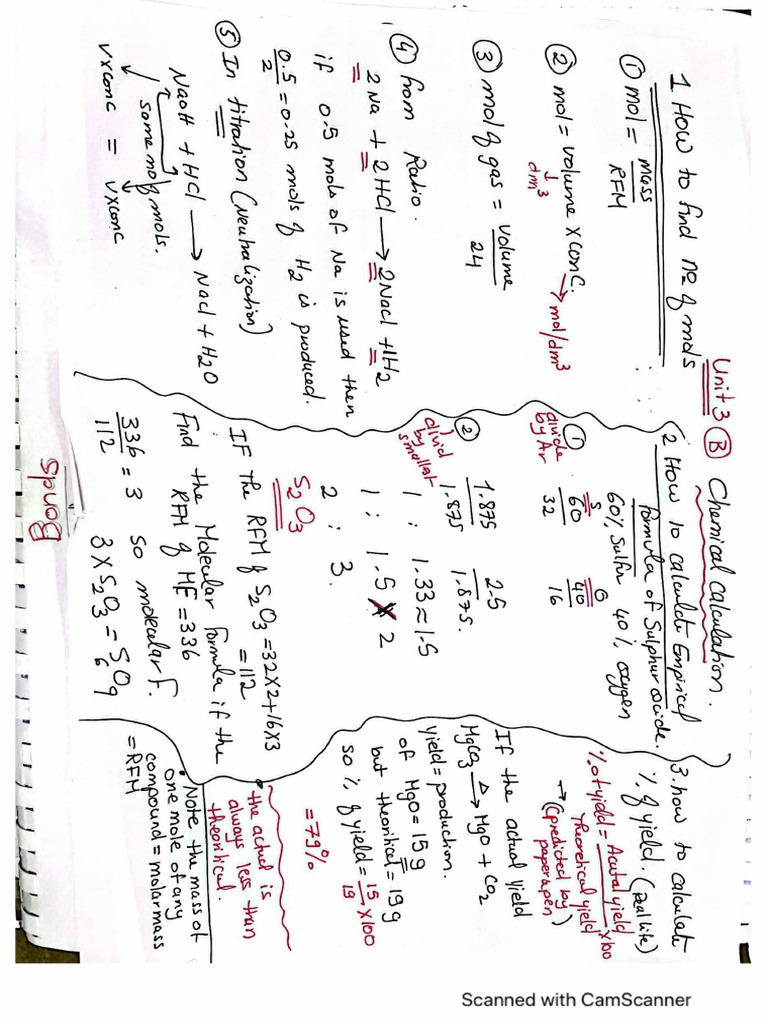 Unit 3 (B) Chemical calculation.
1 How to find nº of mols
① mol = mass
RFM
② mol = volume x conc.
dm³
→ mol/dm³
③ mol of gas = volume
24
④ from Ratio.
2Na + 2HCl → 2NaCl + 1H2
if 0.5 mols of Na is used then
0.5/2 = 0.25 mols of H2 is produced.
⑤ In titration (Neutralization)
NaoH + HCl → NaCl + H2O
same no of mols.
Vxconc = Vxconc
2 How to calculate Empirical
formula of Sulphur oxide.
60% Sulfur 40% oxygen
S O
① 60 40
32 16
divide
by Ar
② 1.875 2.5
1.875 1.875.
divid
by
smallest
1 : 1.33 ≈ 1.5
1 : 1.5 x 2
2 : 3.
S2O3
IF the RFM of S2O3 = 32x2+16x3
= 112
Find the Molecular formula if the
RFM of MF = 336
336 = 3 so molecular F.
112
3 x S2O3 = S6O9
3. how to calculate
% of yield. (real life)
% of yield = Acutal yield x100
Theoretical yield
→ (predicted by
paper&pen)
If the actual yield
MgCO3 △→ MgO + CO2
yield = production.
of MgO = 15g
but theoritical = 19g
so % of yield = 15 x100
19
= 79%
• the actual is
always less than
theoritical.
• Note the mass of
one mole of any
compound = molar mass
= RFM
Bonds
Scanned with CamScanner